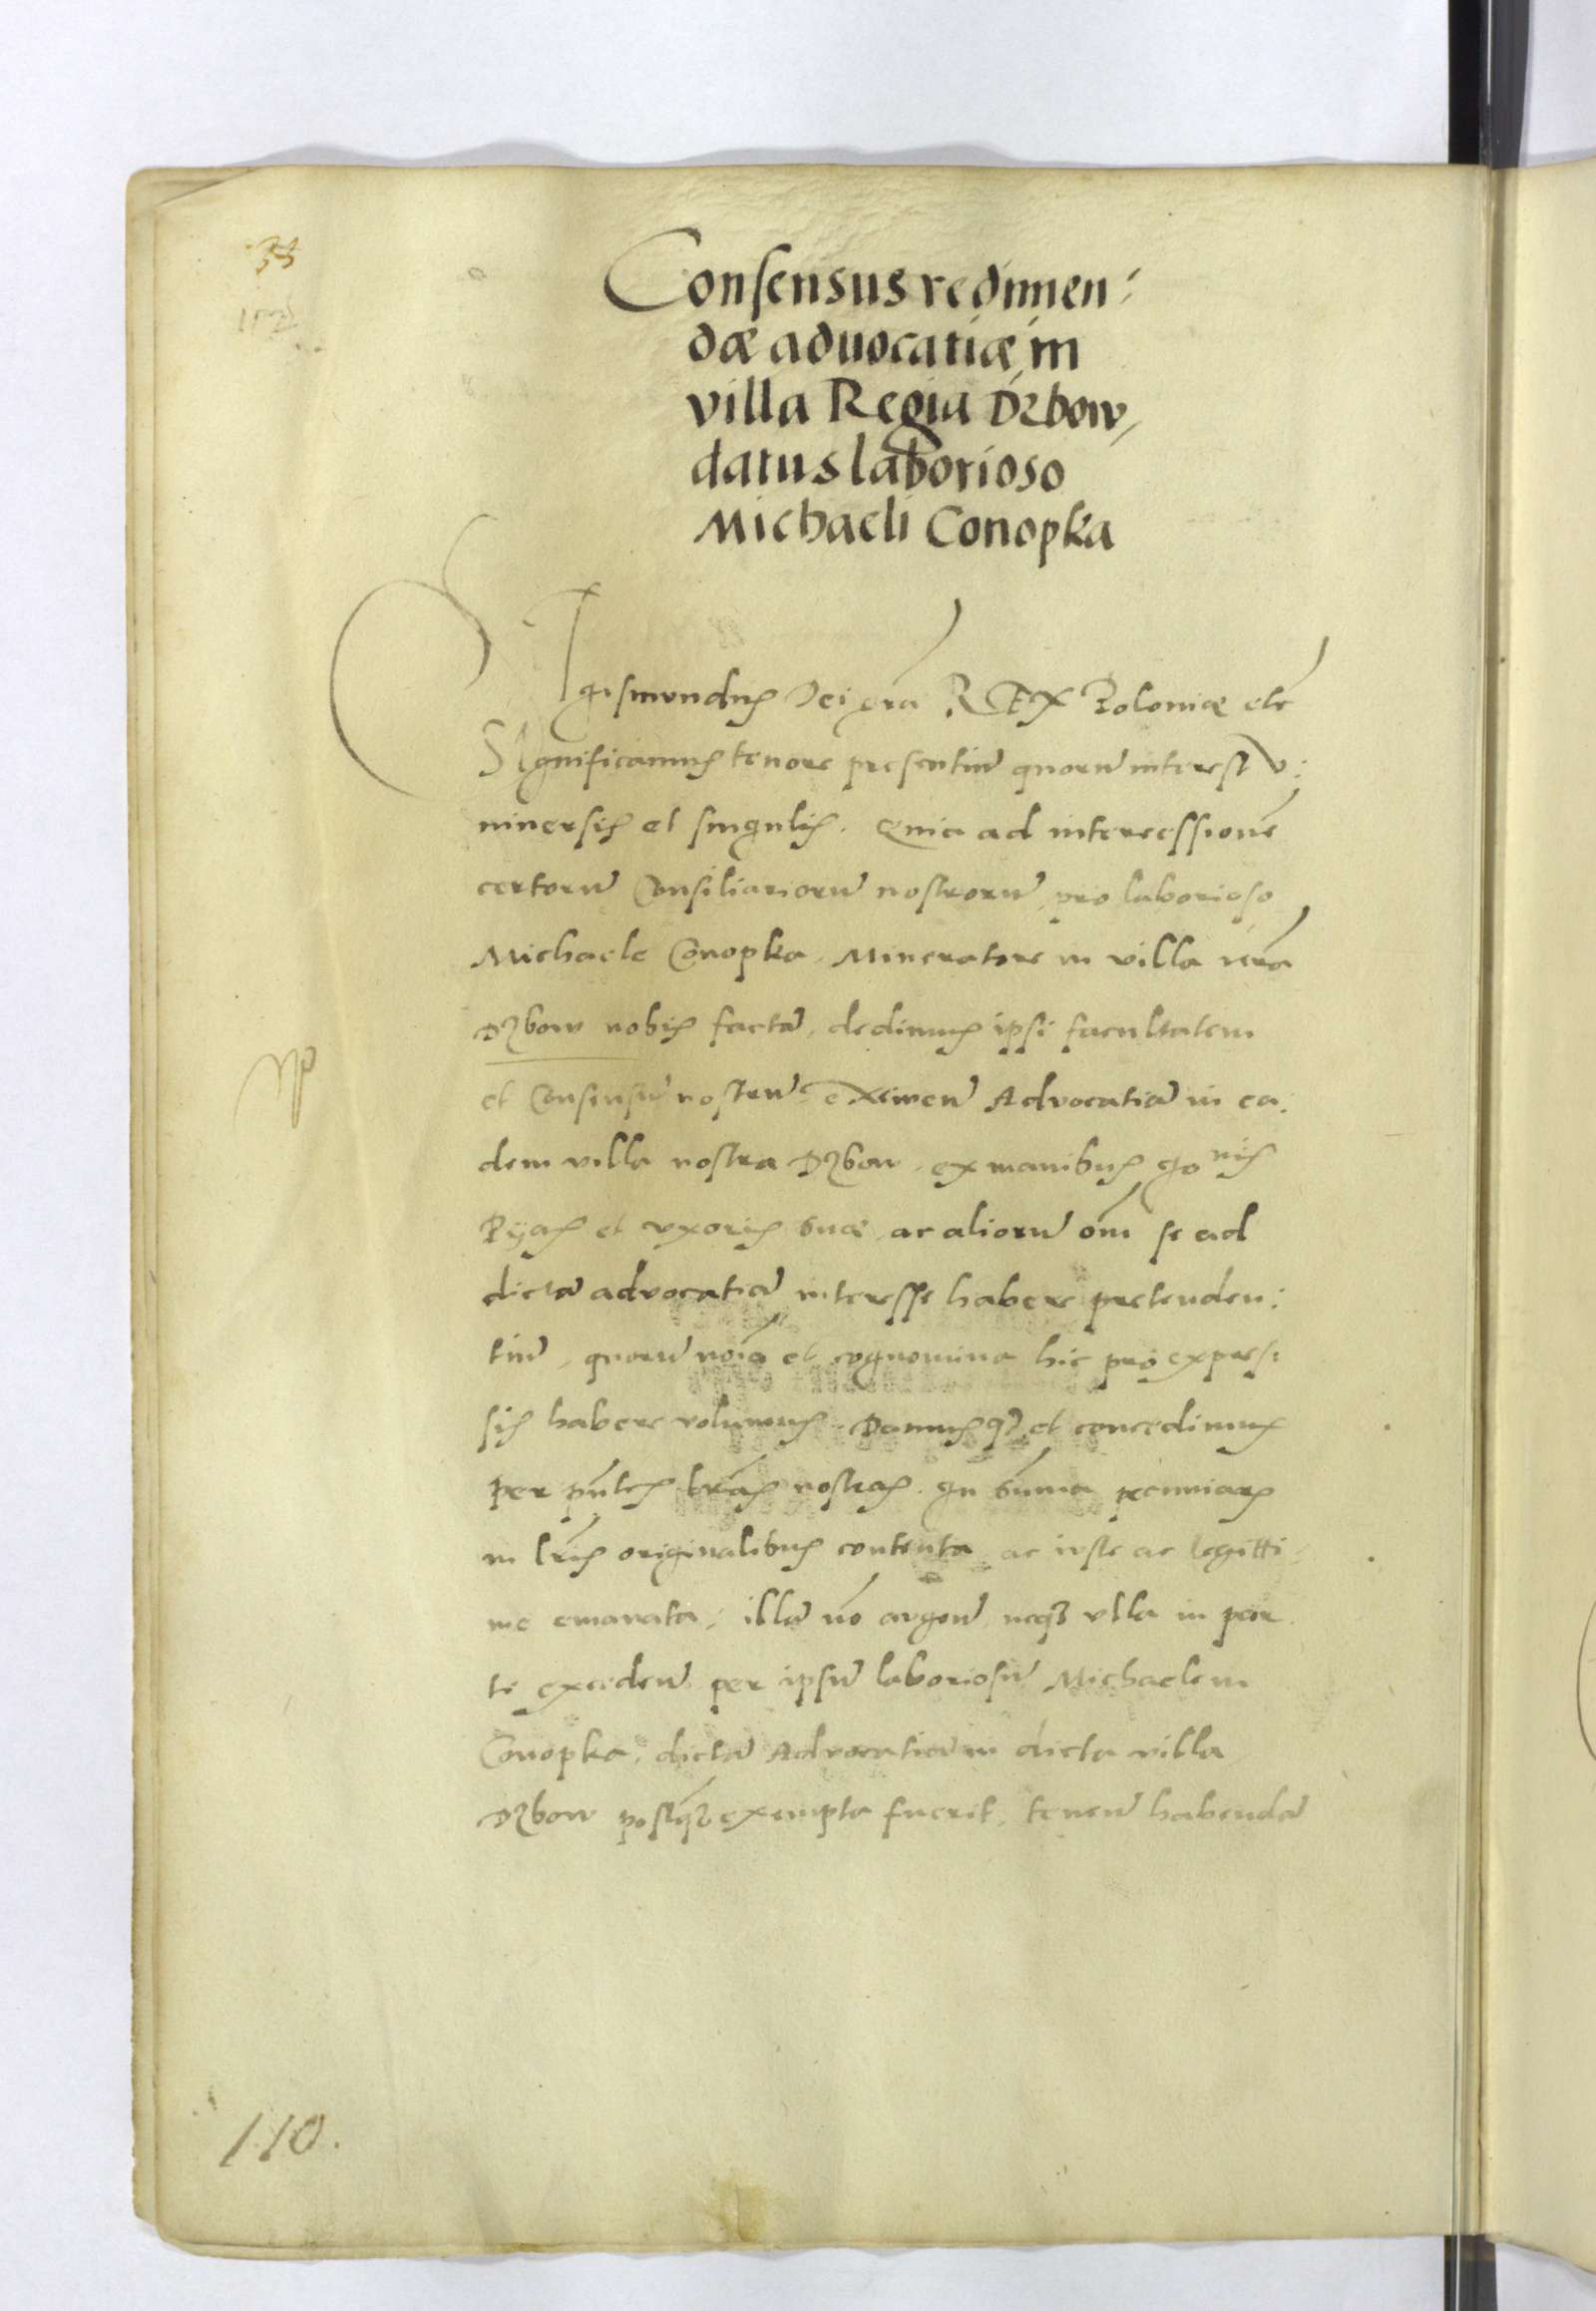 Consensus redimen:
dæ advocatiæ in
villa Regia Dzbow,
datus laborioso
Michaeli Conopka
Sigismundus Dei gra REX Poloniæ etc
SIgnificamus tenore presentium quorum interest v:
niversis et singulis. Quia ad intercessionem
certorum Consiliariorum nostrorum, pro laborioso
Michaele Conopka, Mineratore in villa nra
Dzbow nobis factam, dedimus ipsi facultatem
et Consensum nostrum eximen Advocatiam in ea:
dem villa nostra Dzbow, ex manibus
et vxoris suæ, ac aliorum om se ad
dictam advocatiam interesse habere pretenden:
tium, quorum noia et cognomina hic pro expres:
sis habere volumus. Damusq et concedimus
per pntes lras nostras. In summa pecuniaria
in lris originalibus contenta, ac iuste ac legitti:
me emanata, illam no augen, neq ulla in par
te exceden, per ipsum laboriosum Michaelem
Conopka, dictam Advocatiam in dicta villa
Dzbow postq exempta fuerit, tenen habendam
110.